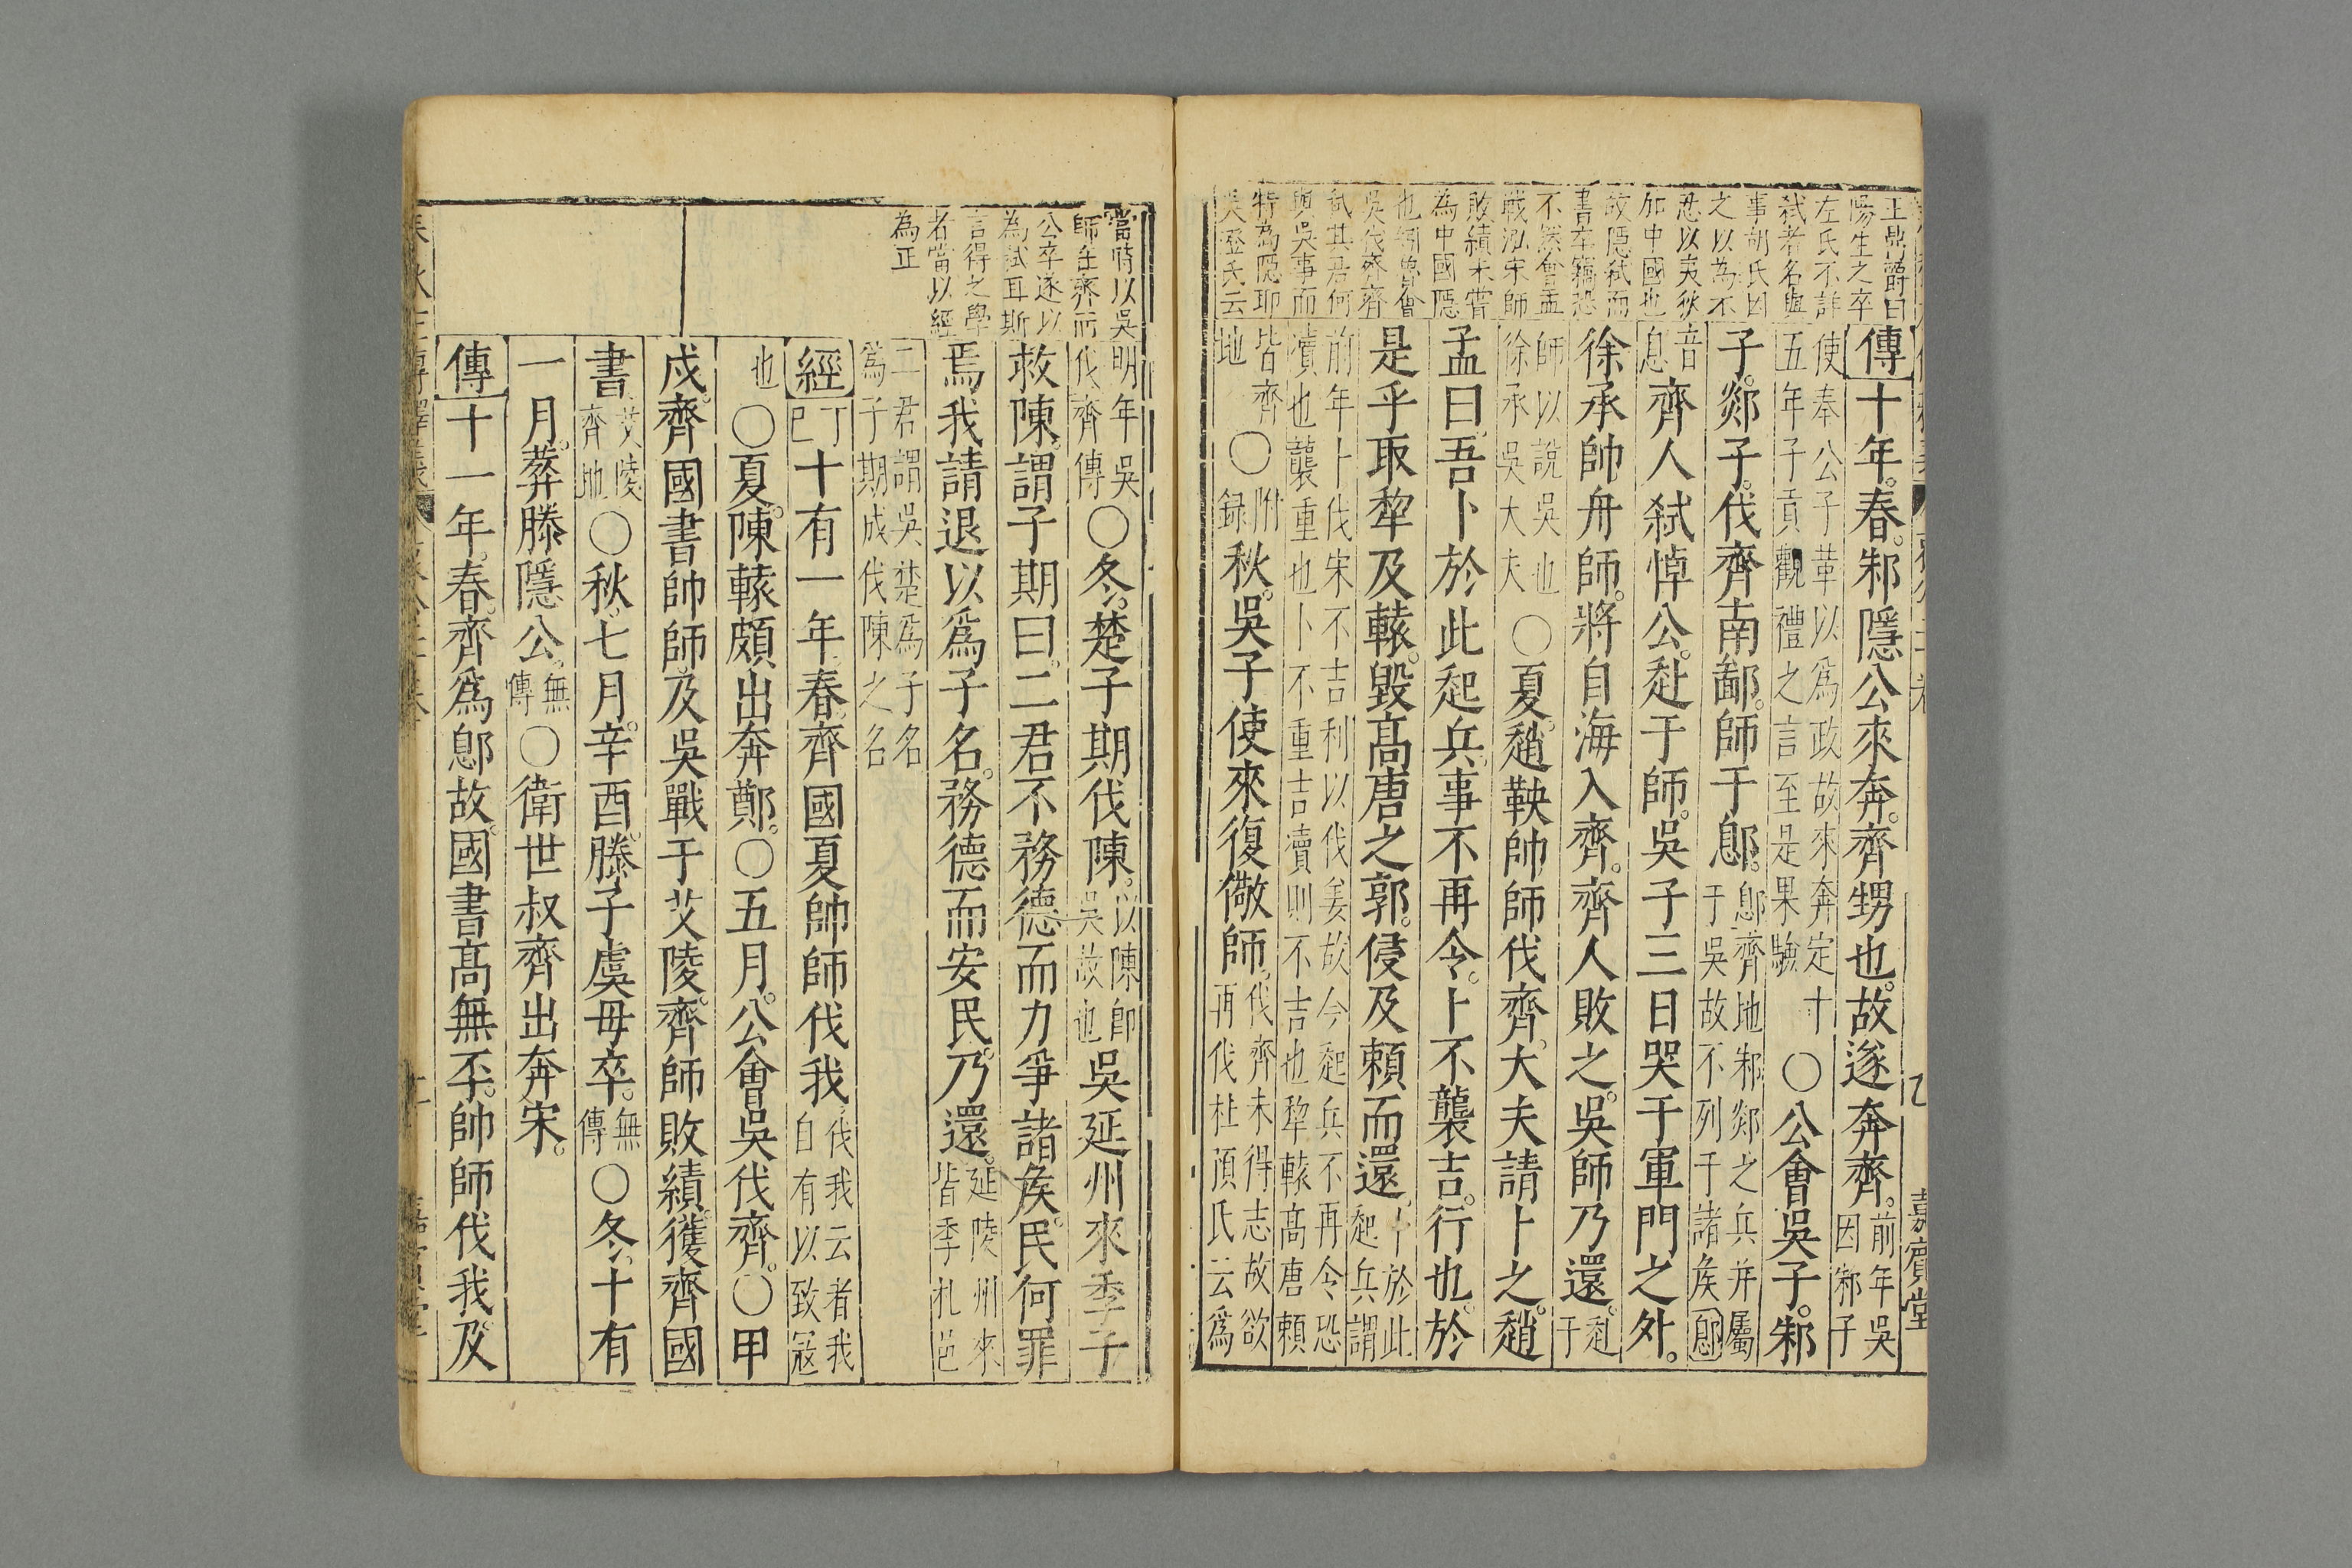 王鼎爵曰
陽生之卒
左氏不詳
弒者名與
事胡氏因
之以為不
忍以夷狄
加中國也
故隱弒而
書卒竊恐
不然會盂
戰泓宋師
敗績未嘗
為中國隱
也矧魯會
吳伐齊齊
弒其君何
與吳事而
特為隱耶
吳澄氏云
傳十年。春。邾隱公來奔。齊甥也。故遂奔齊。前年吳因邾子
使奉公子革以爲政故來奔定十五年子貢觀禮之言至是果驗〇公會吳子。邾
子。郯子。伐齊南鄙。師于鄎。鄎齊地邾郯之兵并屬于吳故不列于諸矦鄎
音息齊人弒悼公。赴于師。吳子三日哭于軍門之外。
徐承帥舟師。將自海入齊。齊人敗之。吳師乃還。赴于
師以說吳也徐承吳大夫〇夏。趙鞅帥師伐齊。大夫請卜之。趙
孟曰。吾卜於此起兵。事不再令。卜不襲吉。行也。於
是乎取犂及轅。毀高唐之郭。侵及賴而還。卜於此起兵謂
前年卜伐宋不吉利以伐姜故今起兵不再令恐瀆也襲重也卜不重吉瀆則不吉也犂轅高唐賴
皆齊地〇附録秋。吳子使來復儆師。伐齊未得志故欲再伐杜預氏云爲
嘉賓堂
當時以吳
師在齊而
公卒遂以
為弒耳斯
言得之學
者當以經
為正
明年吳伐齊傳〇冬。楚子期伐陳。以陳即吳故也吳延州來季子
救陳。謂子期曰。二君不務德而力爭諸矦。民何罪
焉我請退以爲子名。務德而安民。乃還。延陵州來皆季札邑
二君謂吳楚爲子名爲子期成伐陳之名
經丁巳十有一年。春。齊國夏帥師伐我。伐我云者我自有以致寇
也〇夏。陳轅頗出奔鄭。〇五月。公會吳伐齊。〇甲
戌。齊國書帥師。及吳戰于艾陵。齊師敗績。獲齊國
書。艾陵齊地〇秋。七月。辛酉。滕子虞毋卒。無傳〇冬。十有
一月。葬滕隱公。無傳〇衛世叔齊出奔宋。
傳十一年。春。齊爲鄎故。國書高無㔻。帥師伐我。及